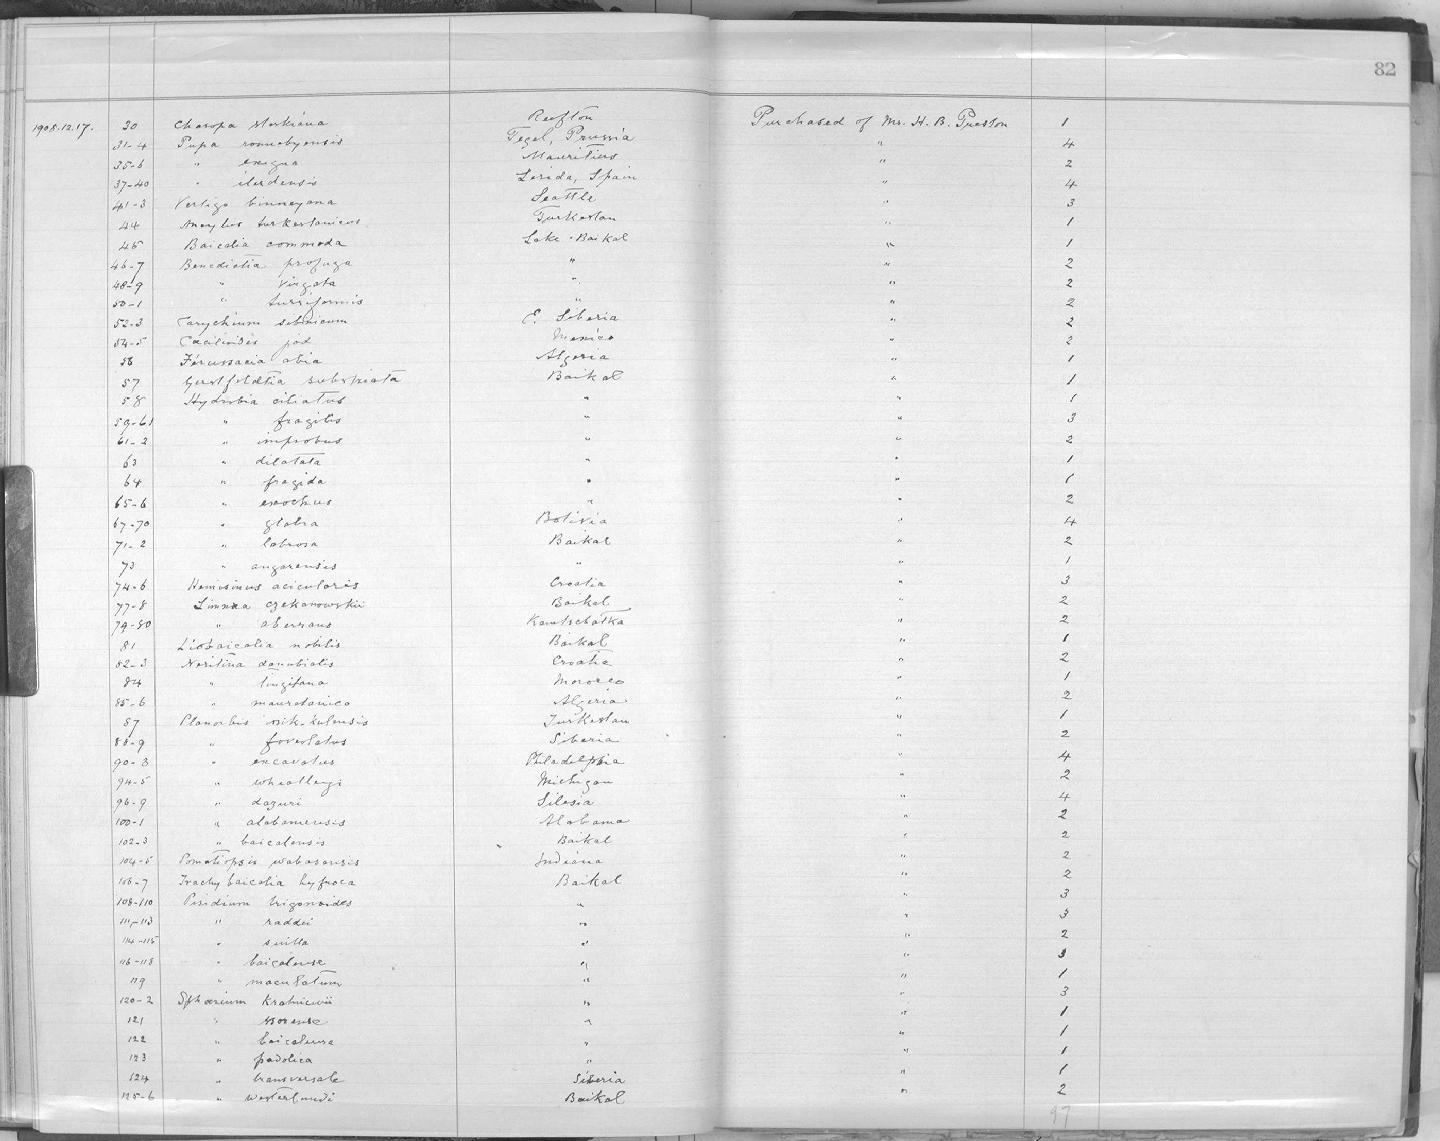 82
1908.12.17. 30 Charopa sterkiana Reefton Purchased of Mr. H. B. Preston 1
31-4 Pupa ronnebyensis Tegel, Prussia " 4
35-6 " exigua Mauritius " 2
37-40 " ilerdensis Lerida, Spain " 4
41-3 Vertigo binneyana Seattle " 3
44 Ancylus turkestanicus Turkestan " 1
45 Baicalia commoda Lake Baikal " 1
46-7 Benedictia profuga " " 2
48-9 " virgata " " 2
50-1 " turriformis " " 2
52-3 Carychium sibiricum E. Siberia " 2
54-5 Cæcilioides Mexico " 2
56 Ferussacia abia Algeria " 1
57 Gerstfeldtia substriata Baikal " 1
58 Hydrobia ciliatus " " 1
59-61 " fragilis " " 3
61-2 " improbus " " 2
63 " dilatata " " 1
64 " fragida " " 1
65-6 " exochus " " 2
67-70 " glabra Bolivia " 4
71-2 " labrosa Baikal " 2
73 " angarensis " " 1
74-6 Hemisinus acicularis Croatia " 3
77-8 Limnæa czekanowskii Baikal " 2
79-80 " aberrans Kamtschatka " 2
81 Liobaicalia nobilis Baikal " 1
82-3 Neritina danubialis Croatia " 2
84 " tingitana Morocco " 1
85-6 " mauretanica Algeria " 2
87 Planorbis issik-kulensis Turkestan " 1
88-9 " foveolatus Siberia " 2
90-3 " excavatus Philadelphia " 4
94-5 " wheatleyi Michigan " 2
96-9 " dazuri Silesia " 4
100-1 " alabamensis Alabama " 2
102-3 " baicalensis Baikal " 2
104-5 Pomatiopsis wabasensis Indiana " 2
106-7 Trachybaicalia Baikal " 2
108-110 Pisidium trigonoides " " 3
111-113 " raddei " " 3
114-115 " " " 2
116-118 " baicalense " " 3
119 " maculatum " " 1
120-2 Sphærium " " 3
121 " " " 1
122 " baicalense " " 1
123 " podolica " " 1
124 " transversale Siberia " 1
125-6 " westerlundi Baikal " 2
97